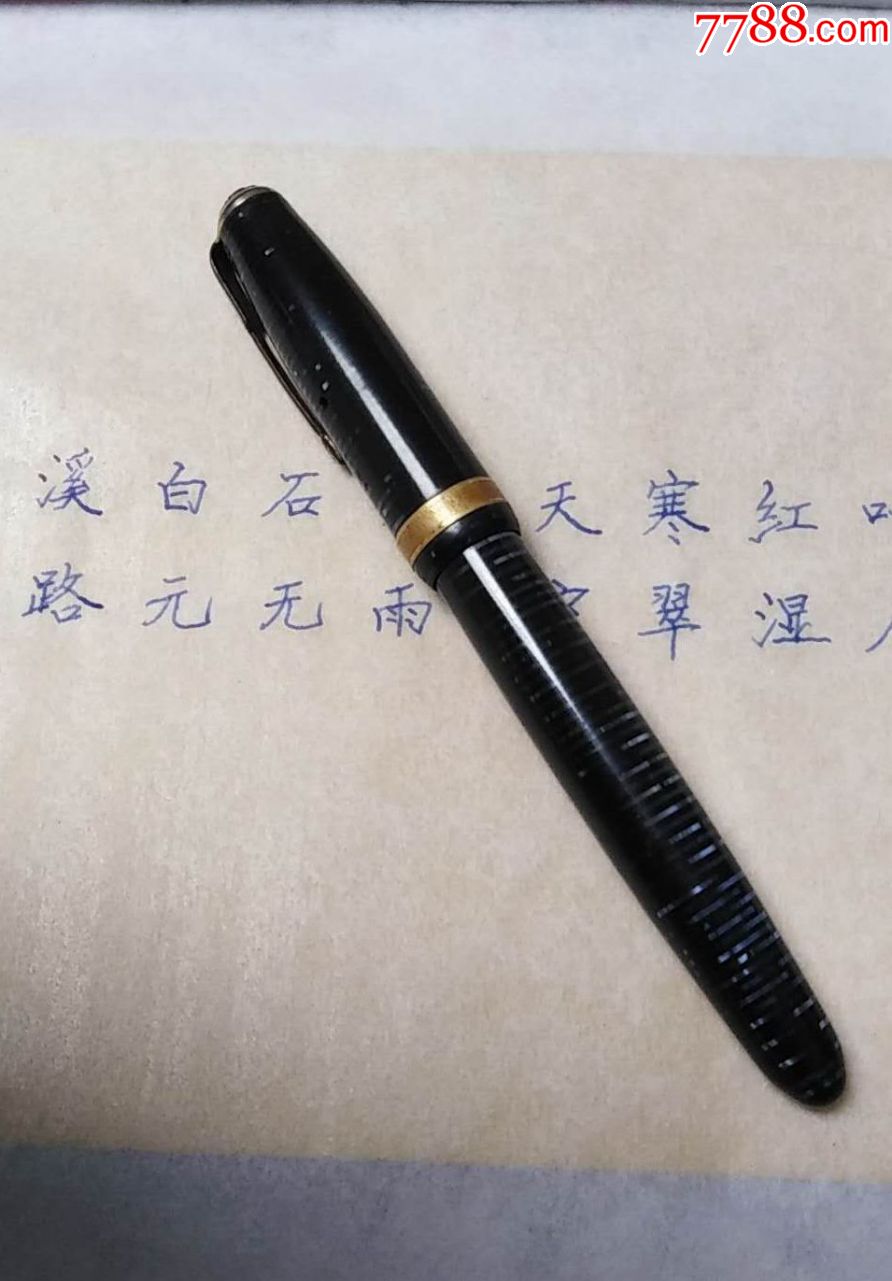 7788.com
溪白石 天寒红
路元无雨 翠湿